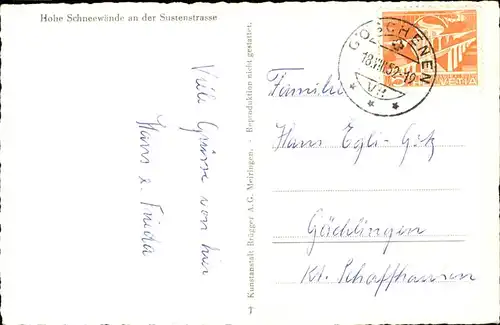 Hohe Schneewände an der Sustenstrasse
Viele Grüsse von hier
Hans u. Frieda
Kunstanstalt Brügger A.G. Meiringen. - Reproduktion nicht gestattet.
GÖSCHENEN
18.VIII.52-19
HELVETIA
Familie
Hans Egli-Götz
Gächlingen
Kt. Schaffhausen